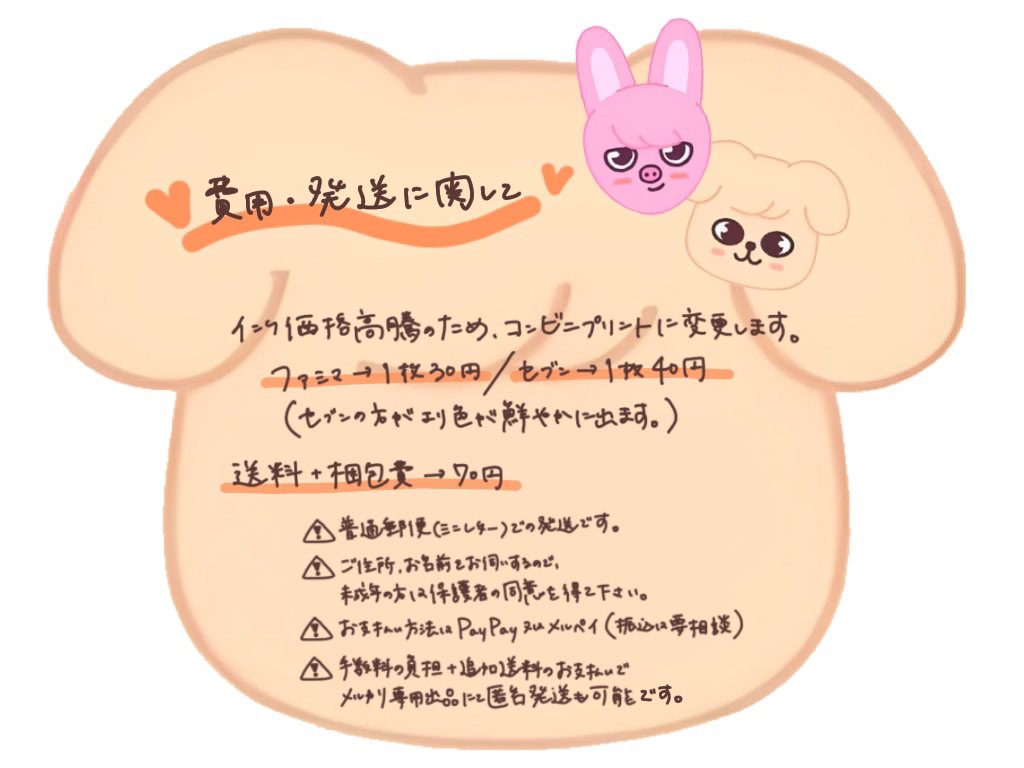 費用・発送に関して
インク価格高騰のため、コンビニプリントに変更します。
ファミマ→1枚30円/セブン→1枚40円
(セブンの方がより色が鮮やかに出ます。)
送料+梱包費→70円
普通郵便(ミニレター)での発送です。
ご住所、お名前をお伺いするので、
未成年の方は保護者の同意を得て下さい。
お支払い方法はPayPay又はメルペイ(振込は要相談)
手数料の負担+追加送料のお支払いで
メルカリ専用出品にて匿名発送も可能です。